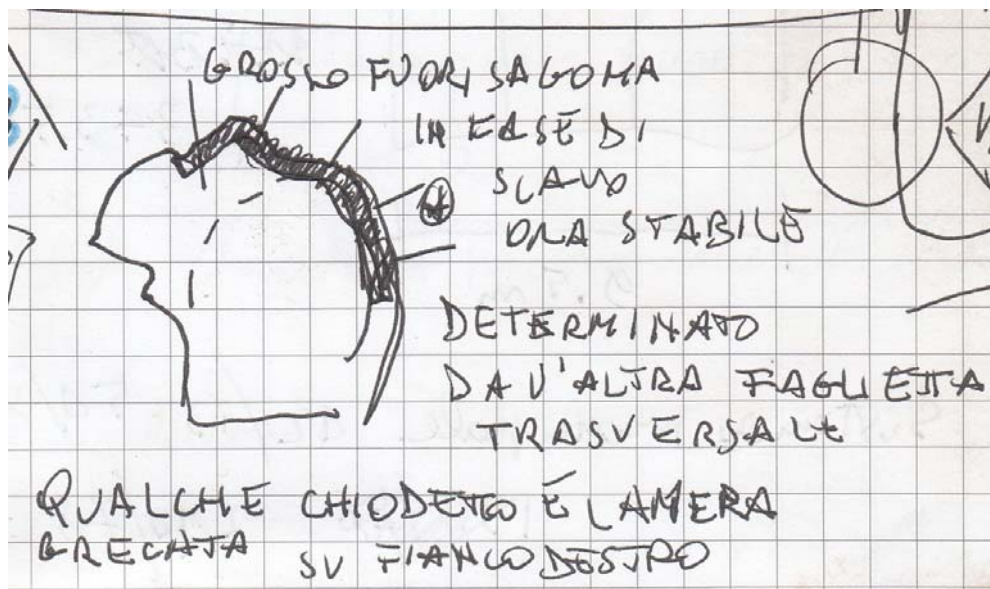 GROSSO FUORISAGOMA
IN FASE DI
SCAVO
ORA STABILE
DETERMINATO
DA U'ALTRA FAGLIETTA
TRASVERSALE
QUALCHE CHIODETTO E LAMERA
GRECATA SU FIANCO DESTRO